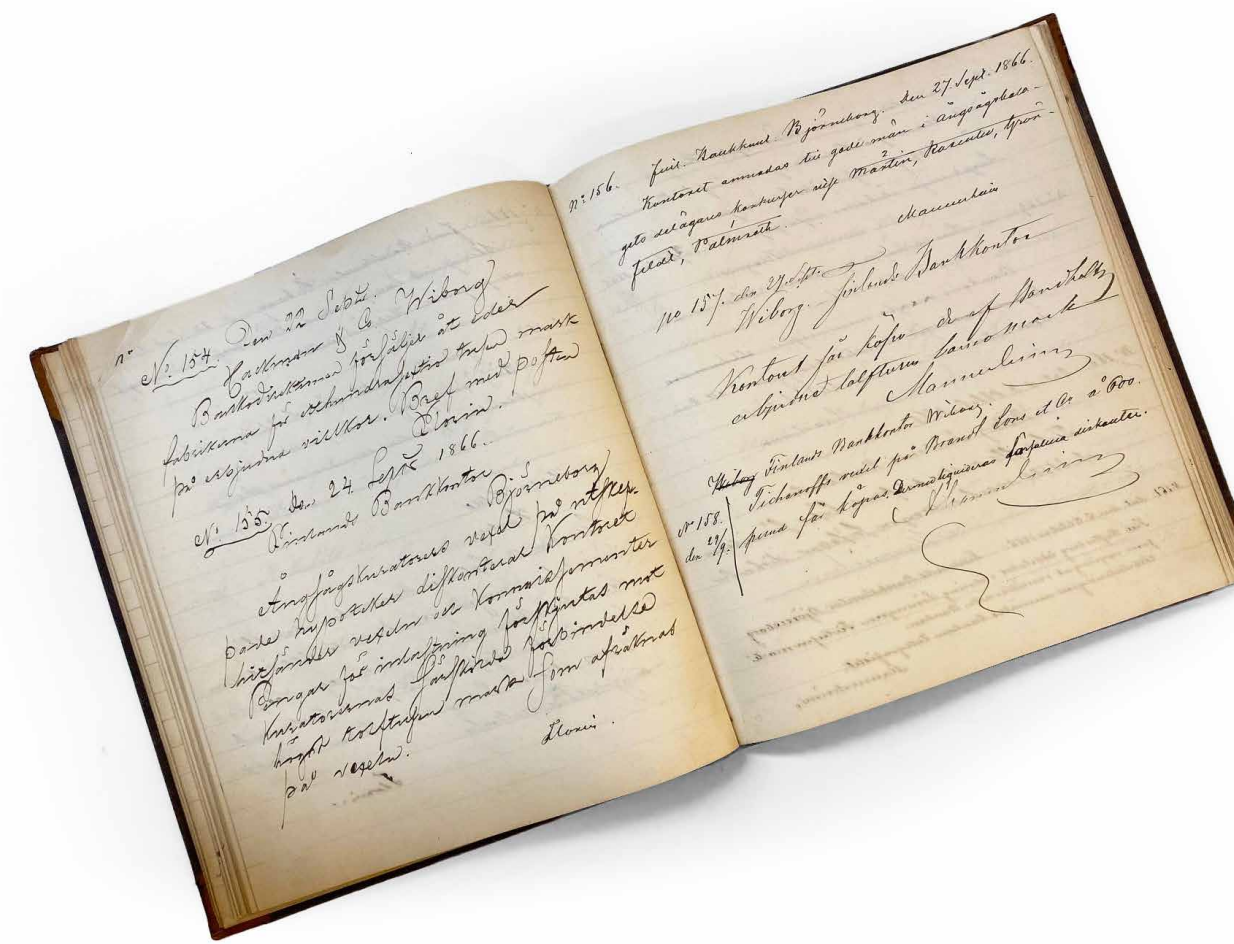 N:o
N:o 154. Den 22 Sept. Wiborg
Hackman & Co
Bankodirektionen försäljer åt Eder
fabrikerna för åttahundrasextio tusen mark
på erbjudna villkor. Bref med posten
Florin.
N:o 155. Den 24 Sept 1866.
Finlands Bankkontor Björneborg
Ångsågskuratorers vexel på
hypoteker diskonterar Kontoret
hitsänder vexeln och
Pengar för inlastning förskjutas mot
Kuratorernas särskilda förbindelse
högst tolftusen mark som afräknas
på vexeln.
Florin.
N:o 156. Finl. Bankkont Björneborg. Den 27. Sept. 1866.
Kontoret anmodas till gode män i ångsågsbola-
gets delägares konkurser Martin, Rosenlew, Grön-
feldt, Palmroth.
Mannerheim
No 157. den 27. Sept.
Wiborg. Finlands Bankkontor
Kontoret får köpa de af
erbjudna tolftusen banco mark
Mannerheim
Wiborg Finlands Bankkontor Wiborg.
N 158.
den 29/9.
Tichanoffs vexel på Brandt Sons et Co à 600.
pund får köpas. Dermed likvideras förfallna diskonter.
Mannerheim